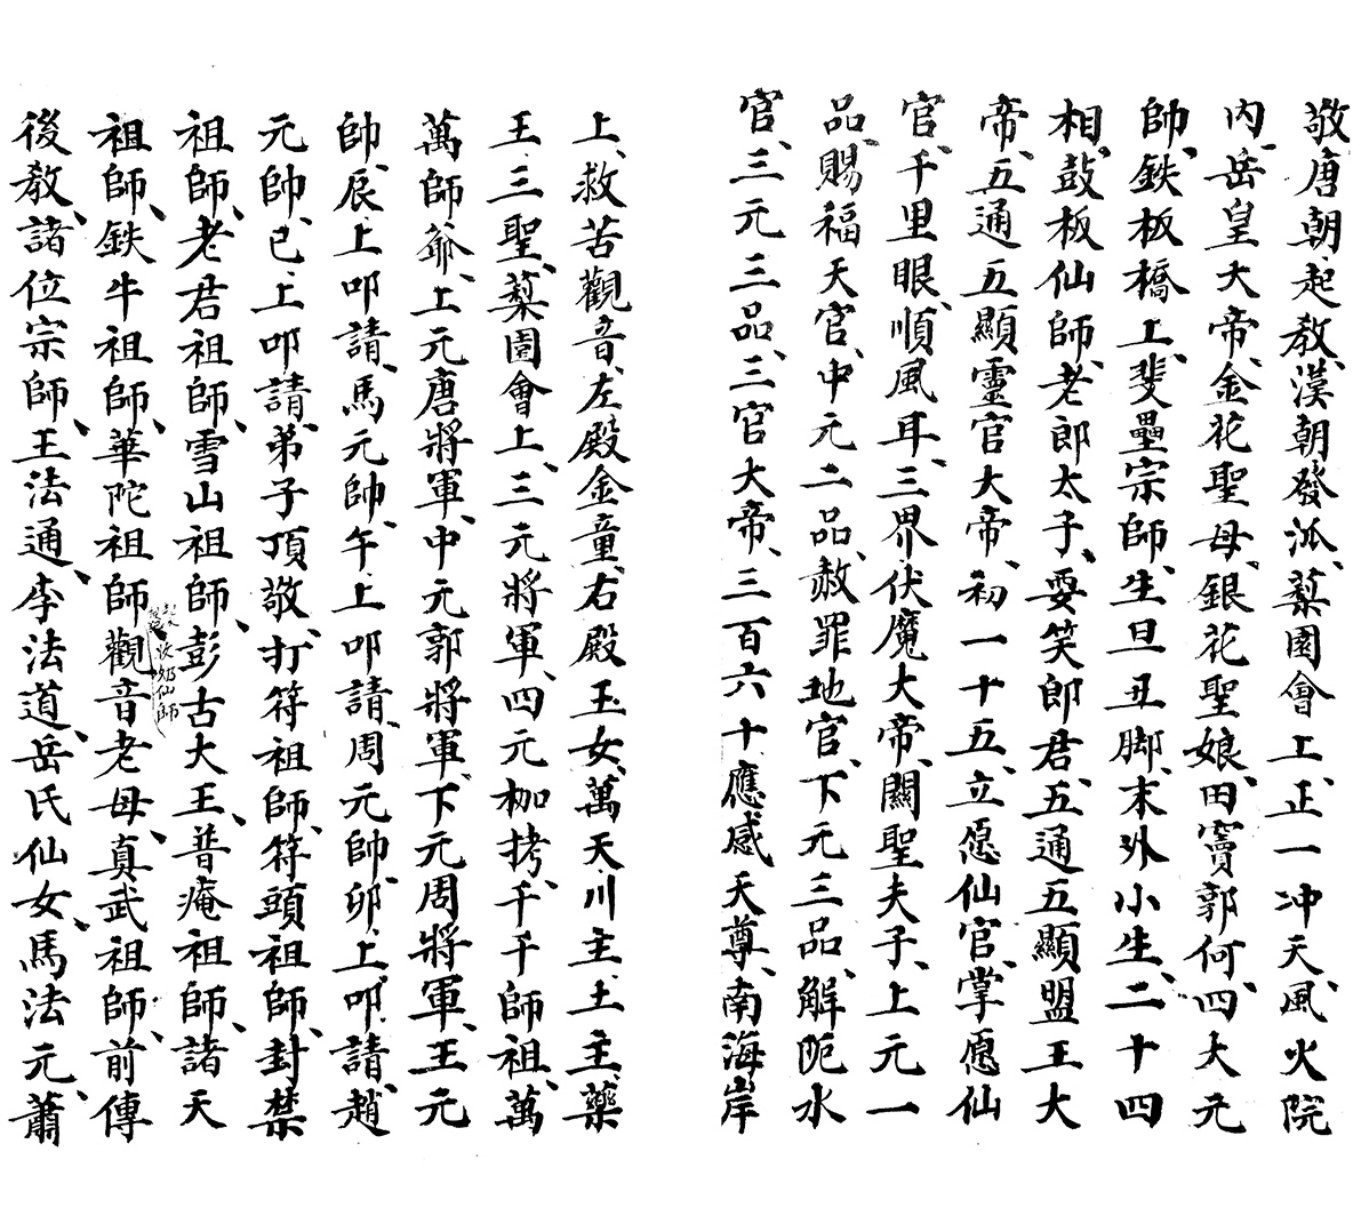 敬唐朝起教、漢朝發派、梨園會上、正一冲天、風火院
內、岳皇大帝、金花聖母、銀花聖娘、田竇郭何、四大元
帥、鉄板橋上、斐壘宗師、生旦丑脚、末外小生、二十四
相、鼓板仙師、老郎太子、耍笑郎君、五通五顯盟王大
帝、五通五顯靈官大帝、初一十五、立愿仙官、掌愿仙
官、千里眼、順風耳、三界伏魔大帝、關聖夫子、上元一
品、賜福天官、中元二品、赦罪地官、下元三品、解阨水
官、三元三品、三官大帝、三百六十應感天尊、南海岸
上、救苦觀音、左殿金童、右殿玉女、萬天川主、土主、藥
王、三聖、梨園會上、三元將軍、四元枷拷、千千師祖、萬
萬師爺、上元唐將軍、中元郭將軍、下元周將軍、王元
帥、辰上叩請、馬元帥、午上叩請、周元帥、卯上叩請、趙
元帥、已上叩請、弟子頂敬、打符祖師、符頭祖師、封禁
祖師、老君祖師、雪山祖師、彭古大王、普庵祖師、諸天
祖師、鉄牛祖師、華陀祖師、觀音老母、真武祖師、前傳
後教、諸位宗師、王法通、李法道、岳氏仙女、馬法元、蕭